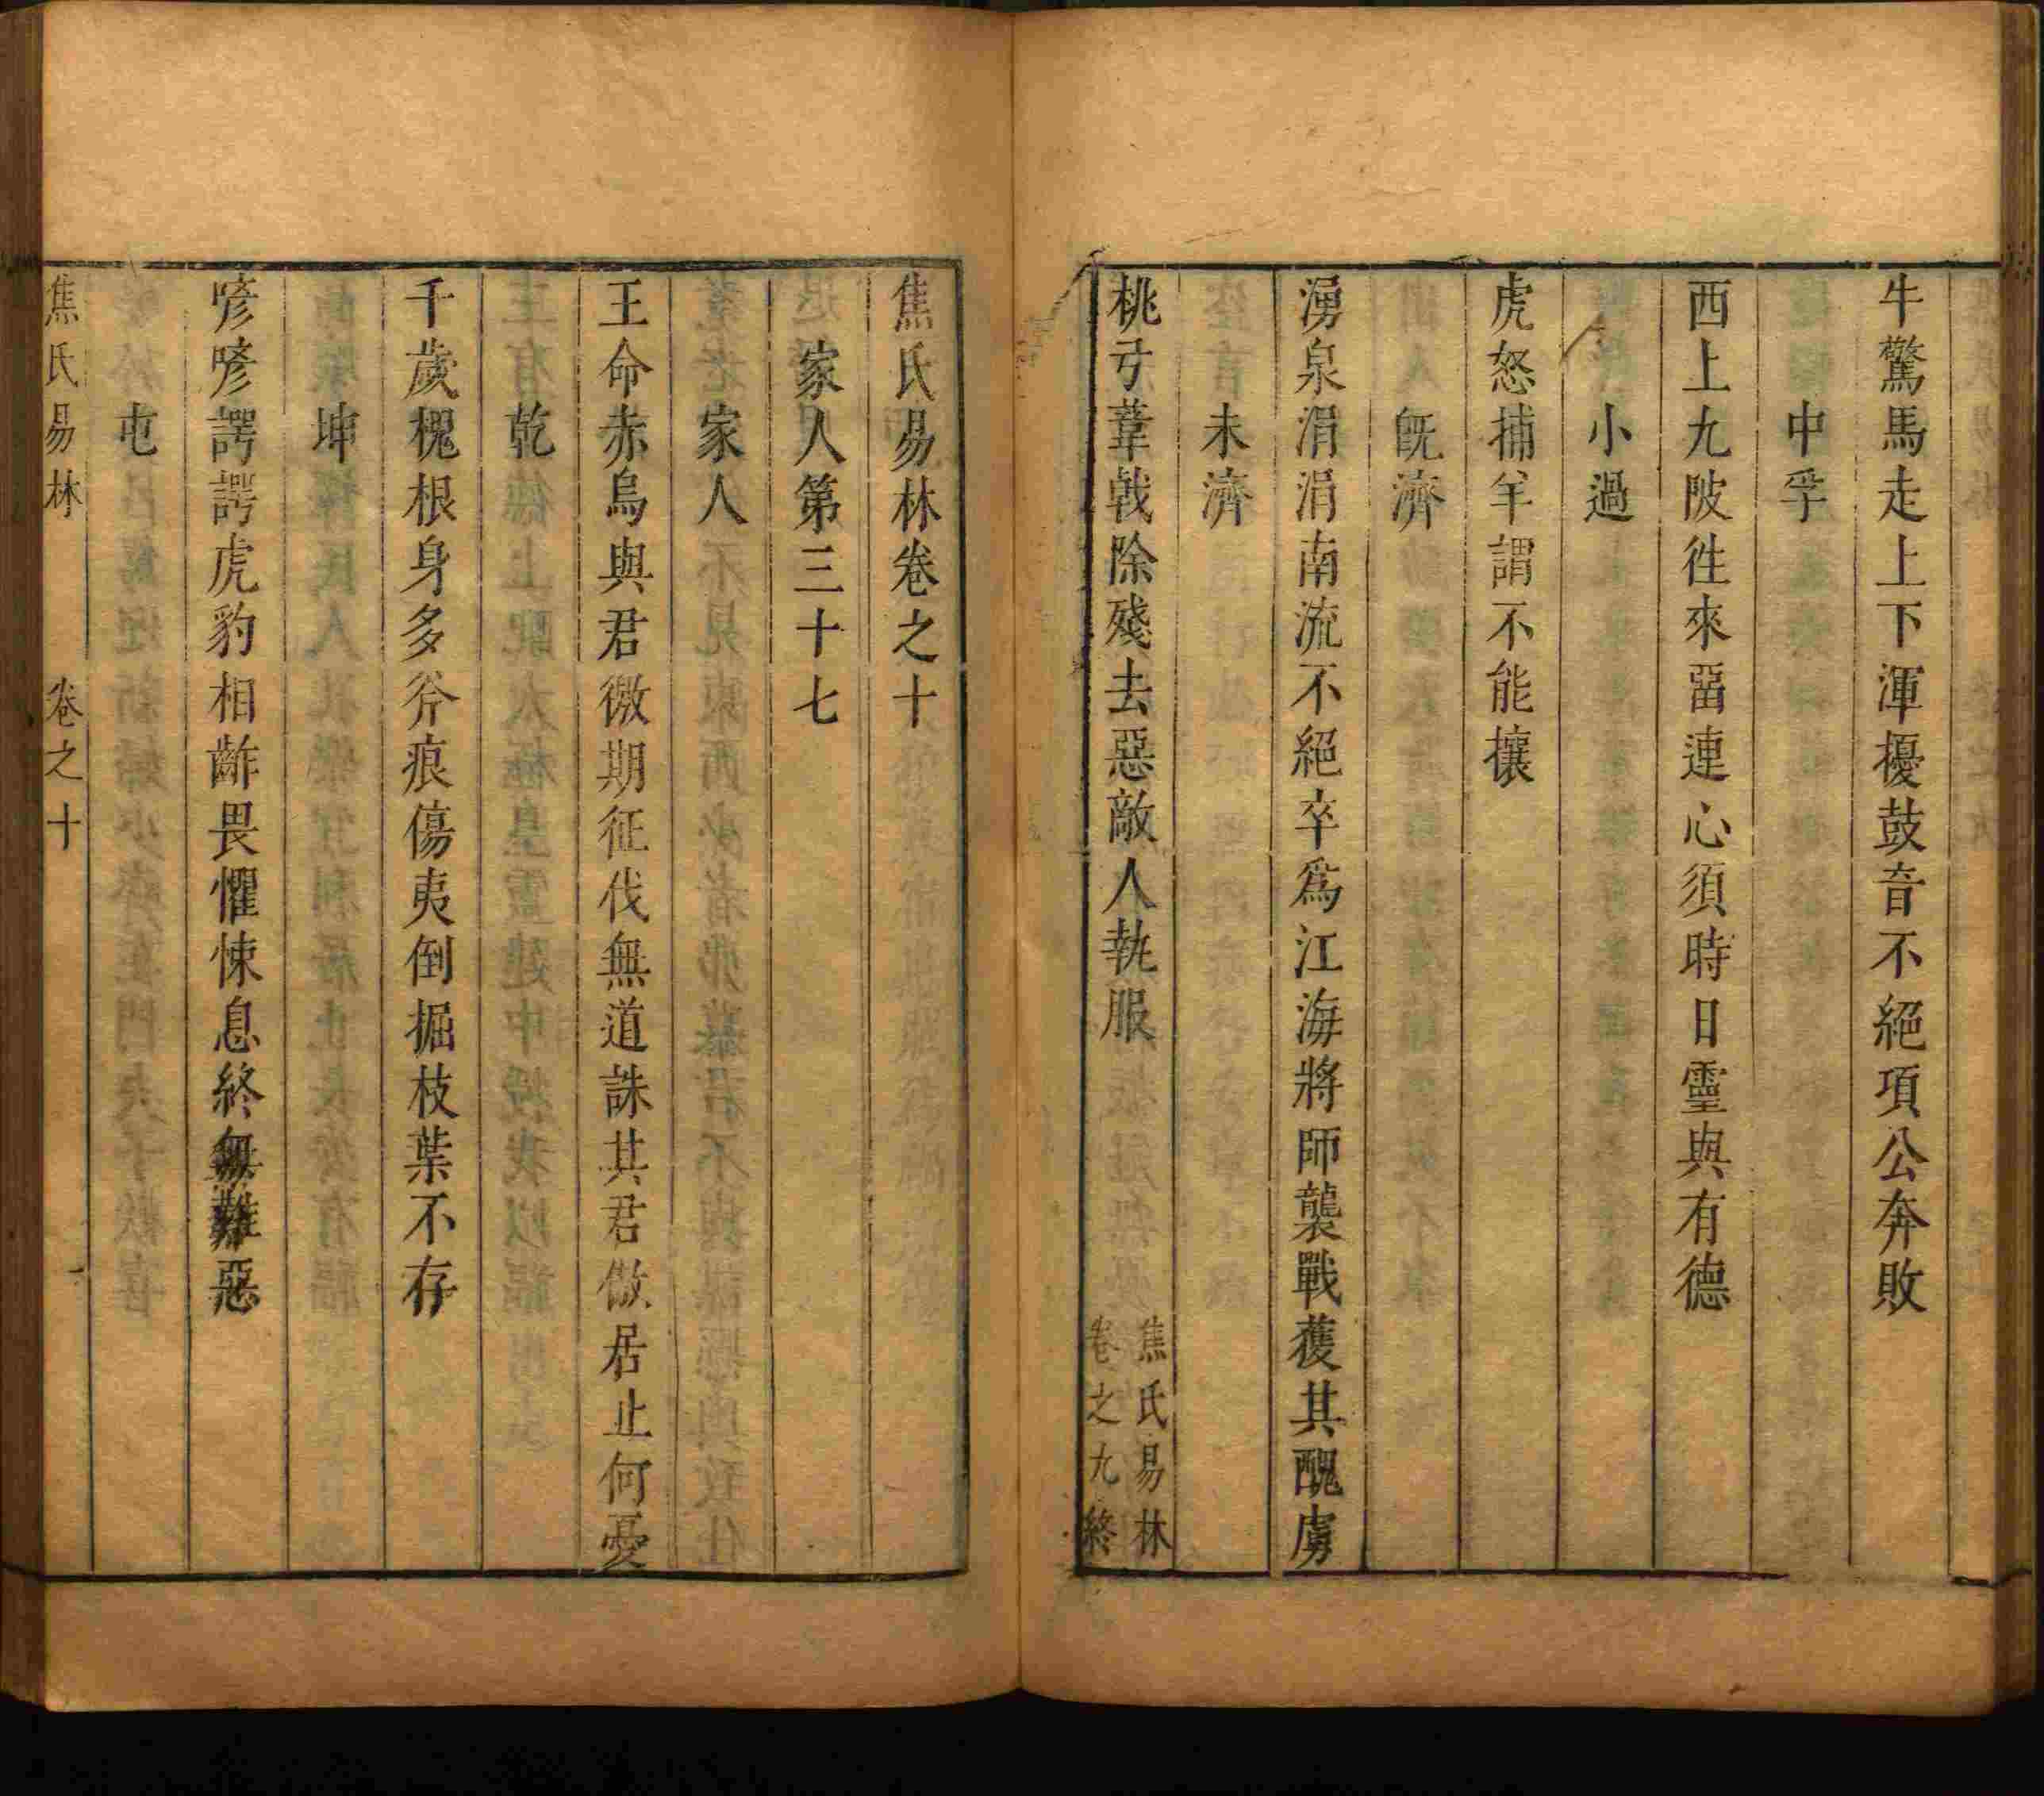 牛驚馬走上下渾擾鼓音不絕項公奔敗
中孚
西上九陂徃來畱連心須時日靈與有德
小過
虎怒捕羊謂不能攘
旣濟
湧泉涓涓南流不絕卒爲江海將師襲戰獲其醜虜
未濟
桃弓葦戟除殘去惡敵人執服
焦氏易林
卷之九終
焦氏易林卷之十
家人第三十七
家人
王命赤烏與君徵期征伐無道誅其君傲居止何憂
乾
千歲槐根身多斧痕傷夷倒掘枝葉不存
坤
喭喭諤諤虎豹相齚畏懼悚息終無難惡
屯
焦氏易林 卷之十 一